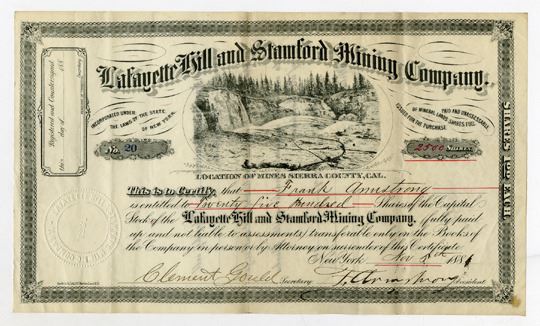 Lafayette Hill and Stamford Mining Company.
Registered and Countersigned
this day of 188
INCORPORATED UNDER
THE LAWS OF THE STATE
OF NEW YORK.
PAID AND UNASSESSABLE,
OF MINERAL LANDS. SHARES FULL
ISSUED FOR THE PURCHASE
No. 20
2500 Shares
LOCATION OF MINES SIERRA COUNTY, CAL.
This is to Certify, that Frank Armstrong
is entitled to Twenty five Hundred Shares of the Capital
Stock of the Lafayette Hill and Stamford Mining Company, (fully paid
up and not liable to assessments) transferable only on the Books of
the Company in person or by Attorney on surrender of this Certificate
New York Nov 188
Clement Gould Secretary F. Armstrong President
SHARES EACH